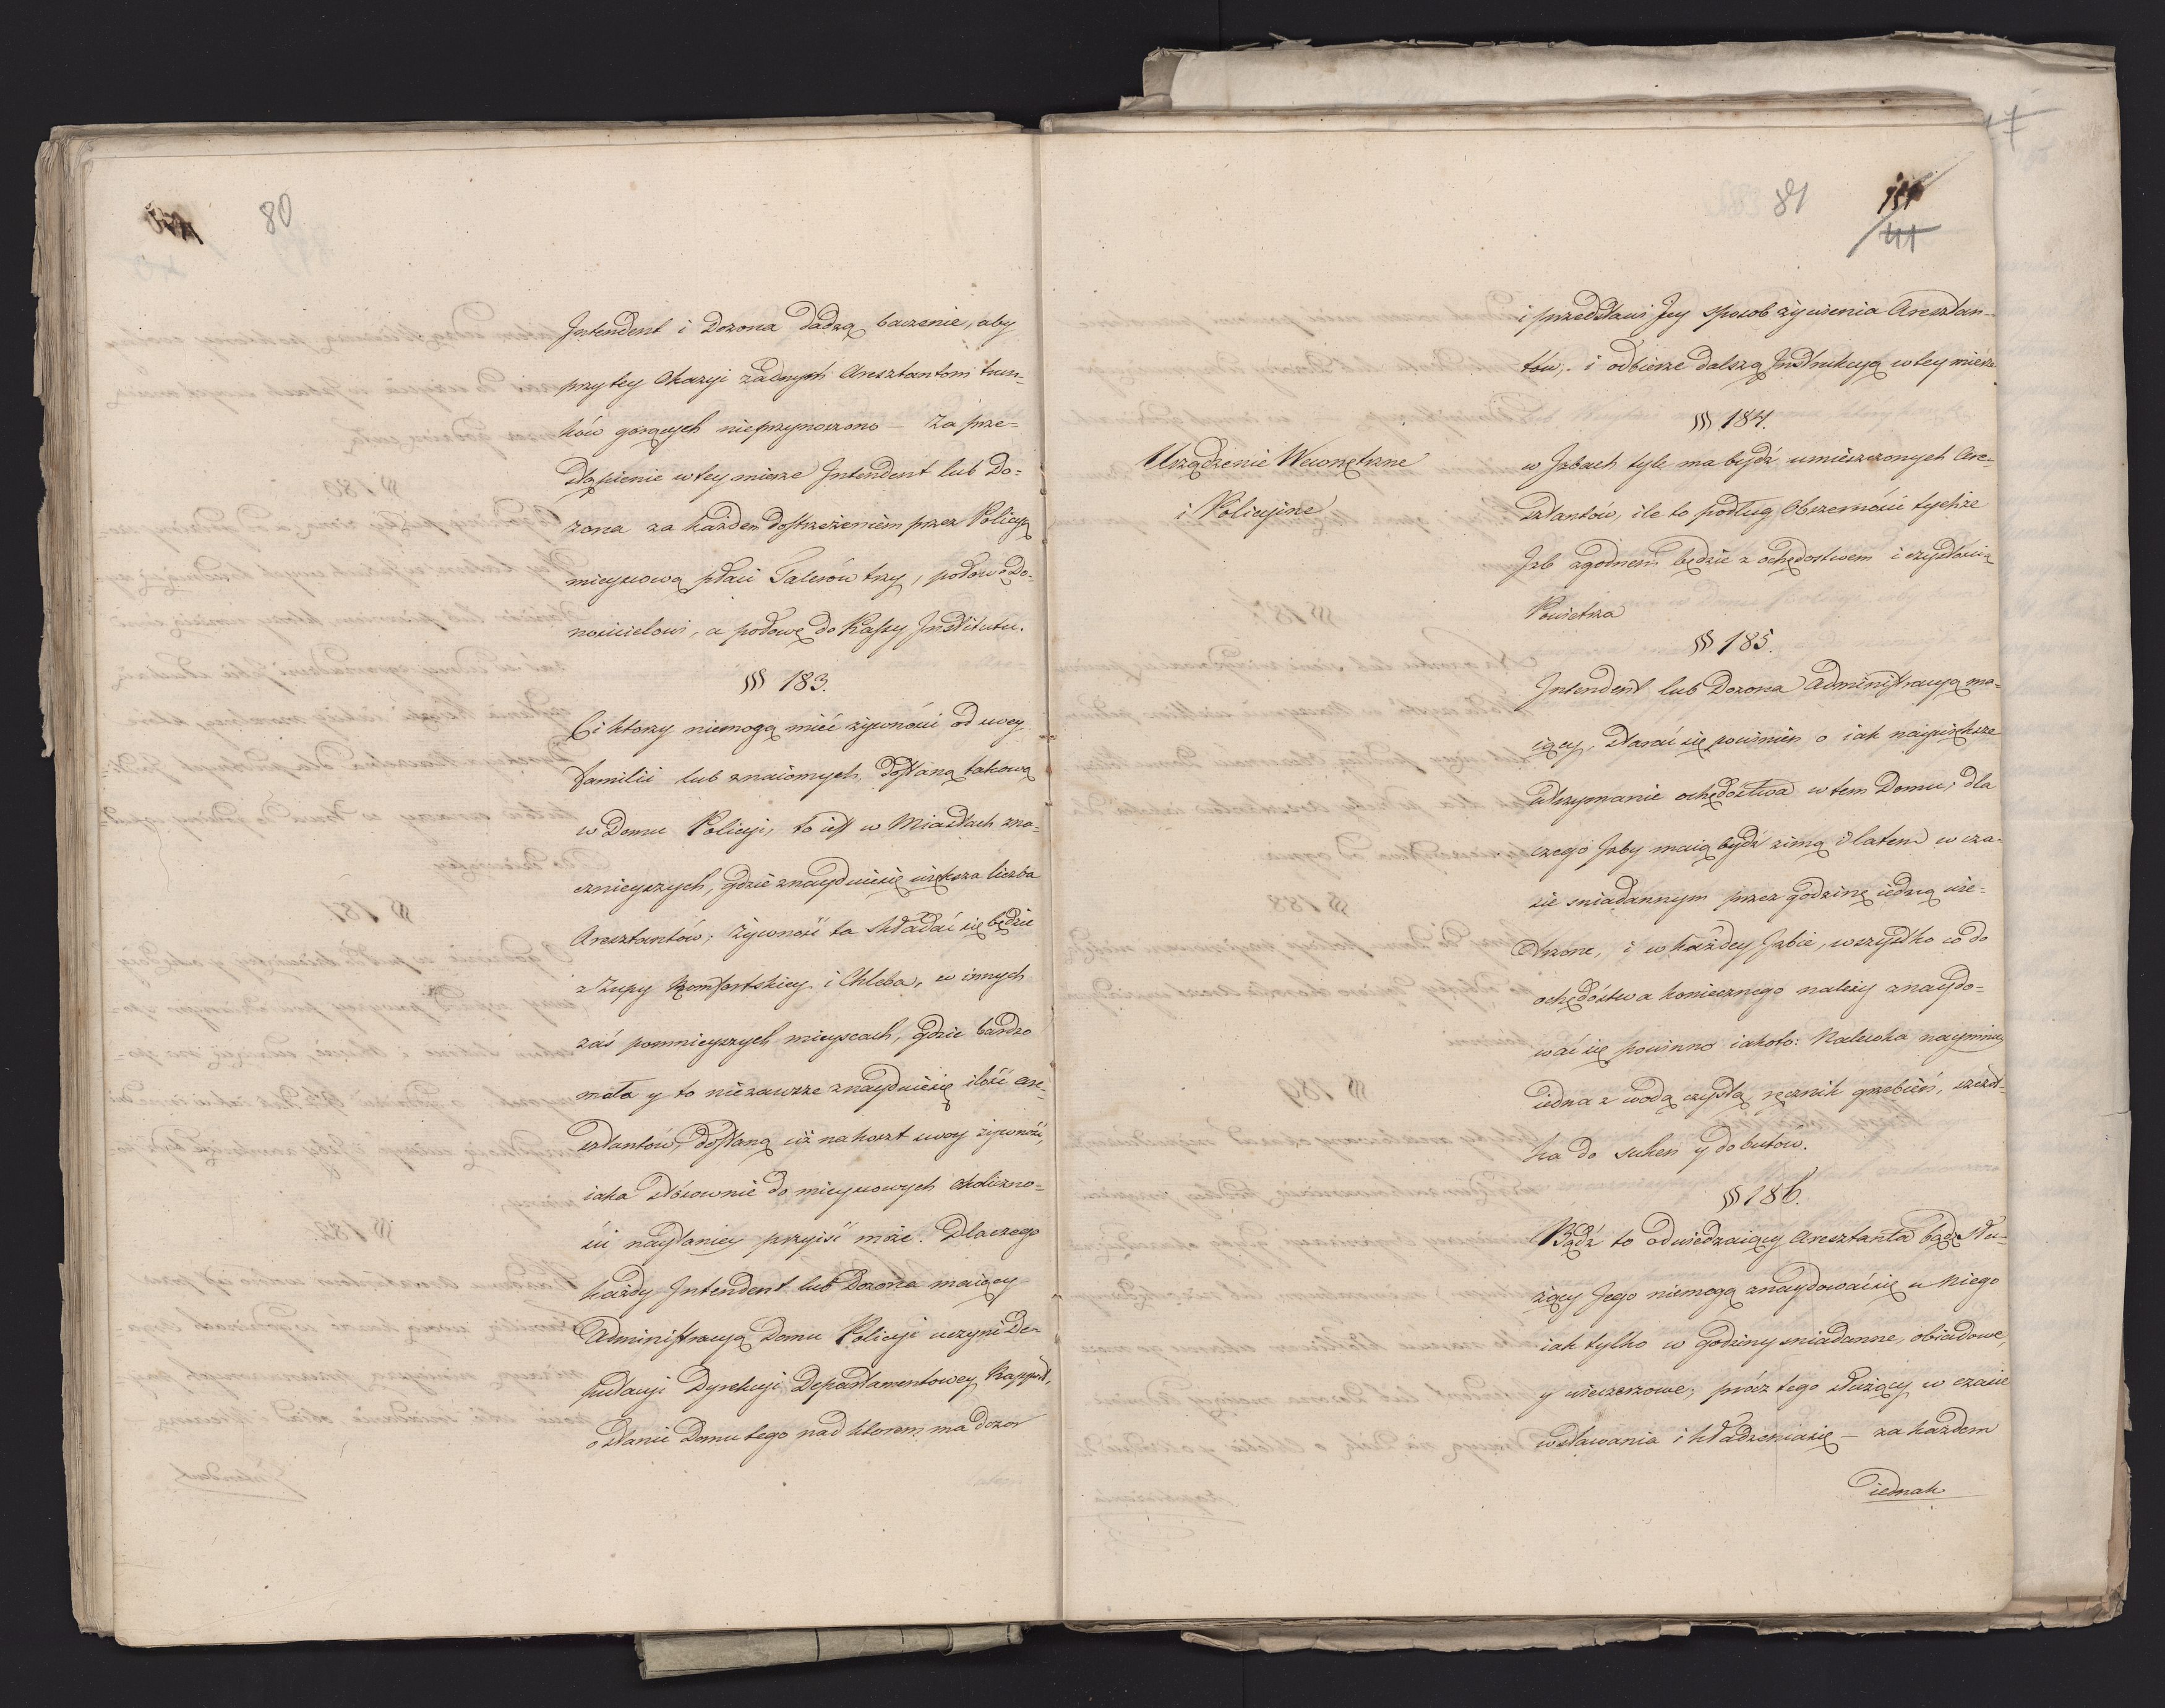 80
Intendent i Dozorca dadzą baczenie, aby
przy tey Okazyi żadnych Aresztantom trun-
ków gorących nieprzynoszono – Za prze=
stąpienie w tey mierze Intendent lub Do=
zorca za każdem dostrzeżeniem przez Policyą
mieyscową płaci Talerów trzy, połowę Do=
nosicielowi, a połowę do Kassy Institutu.
§§§ 183.
Ci ktorzy niemogą mieć żywności od swey
familii lub znaiomych, dostaną takową
w Domu Policyi, to iest w Miastach zna-
cznieyszych, gdzie znayduiesię większa liczba
Aresztantów; Żywność ta składać się będzie
z Zupy Romfortskiey i Chleba, w innych
zaś pomnieyszych mieyscach, gdzie bardzo
mała y to niezawsze znayduiesię ilość are-
sztantów, dostaną iuż na koszt swoy żywność,
iaka stósownie do mieyscowych Okoliczno=
ści naytaniey przyiść może. Dlaczego
każdy Intendent lub Dozorca maiący
Administracyą Domu Policyi uczyni De-
putacyi Dyrekcyi Departamentowey Rapport,
o stanie Domu tego nad ktorem ma dozor
81
41
i przedstawi Jey sposob żywienia Aresztan-
tów, i odbierze dalszą Instrukcyą w tey mierze
§§§ 184.
Urządzenie Wewnętrzne
i Policyine
w Izbach tyle ma bydź umieszczonych Are-
sztantów, ile to podług Obszerności tychże
Izb zgodnem będzie z ochędostwem i czystością
Powietrza
§§ 185.
Intendent lub Dozorca Administracyą ma-
iący, starać się powinien o iak naywiększe
utrzymanie ochędóstwa w tem Domu; dla
czego Izby maią bydź zimą i latem w cza-
sie sniadannym przez godzinę iedną wie-
trzone, i w każdey Izbie, wszystko co do
ochędóstwa koniecznego należy znaydo-
wać się powinno iakoto: Nalewka naymniey
iedna z wodą czystą, ręcznik grzebień, szczót-
ka do suken y do butów.
§§ 186.
Bądź to odwiedzaiący Aresztanta bądź słu-
żący Jego niemogą znaydowaćsię u Niego
iak tylko w godziny sniadanne, obiadowe,
y wieczerzowe, prócz tego służący w czasie
wstawania i kładzeniasię – za każdem
iednak